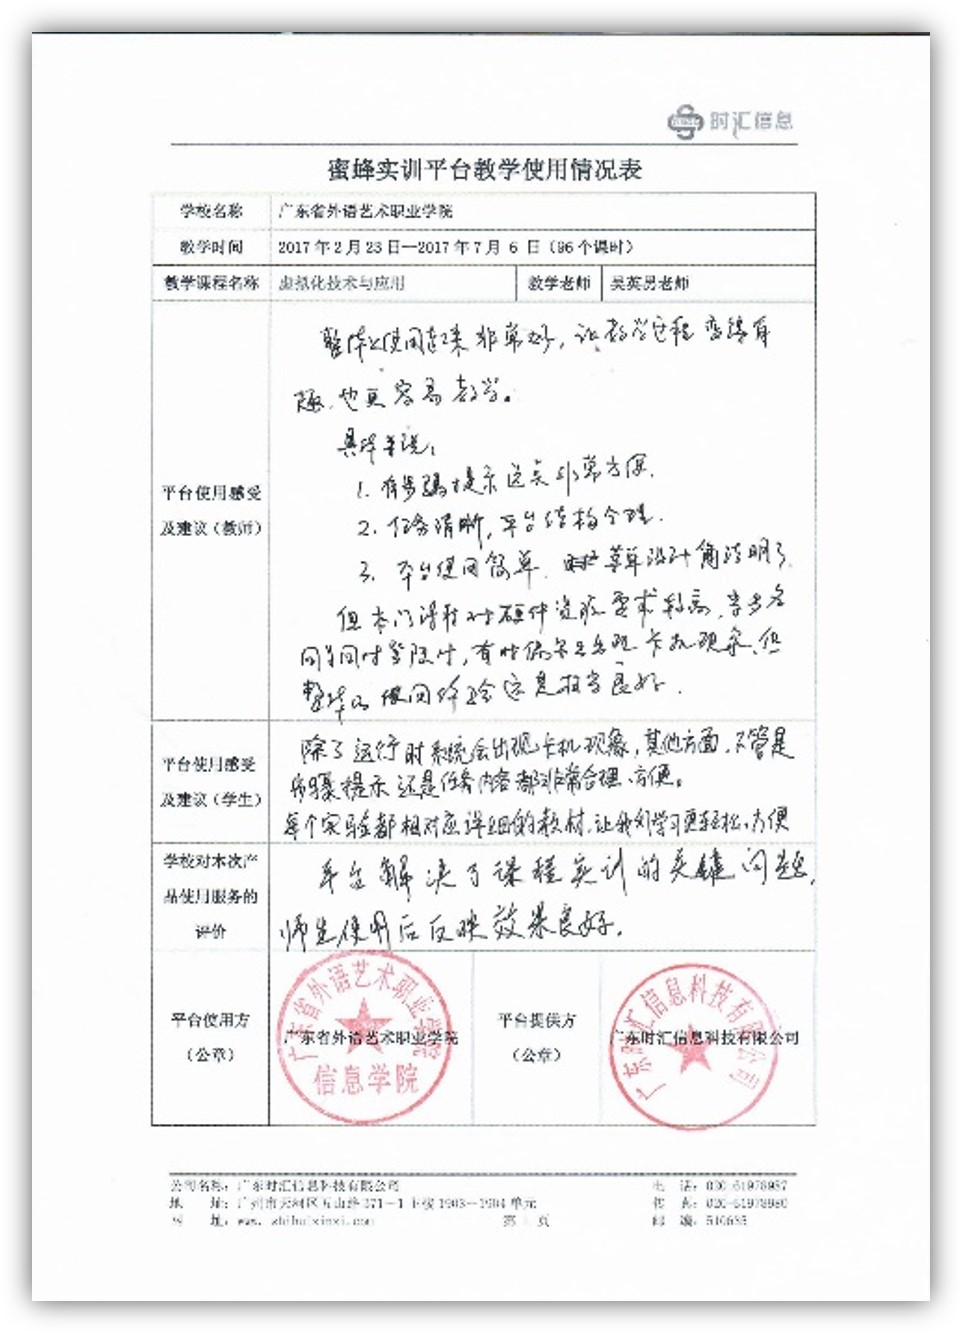 时汇信息
蜜蜂实训平台教学使用情况表
学校名称 广东省外语艺术职业学院
教学时间 2017年2月23日—2017年7月6日（96个课时）
教学课程名称 虚拟化技术与应用 教学老师 吴英男老师
平台使用感受
及建议（教师）
整体使用起来非常好，让教学过程变得有
趣，也更容易教学。
具体来说：
1. 有步骤提示这点非常方便.
2. 任务清晰，平台结构合理.
3. 平台使用简单. 菜单设计简洁明了
但本门课程对硬件资源要求较高，当多名
同学同时实验时，有时偶尔会出现卡机现象，但
整体的使用体验还是相当良好.
平台使用感受
及建议（学生）
除了运行时系统会出现卡机现象，其他方面，不管是
步骤提示还是任务内容都非常合理、方便。
每个实验都相对应详细的教材，让我们学习更轻松、方便
学校对本次产
品使用服务的
评价
平台解决了课程实训的关键问题，
师生使用后反映效果良好.
平台使用方
（公章）
广东省外语艺术职业学院
广东省外语艺术职业学院
信息学院
平台提供方
（公章）
广东时汇信息科技有限公司
广东时汇信息科技有限公司
公司名称：广东时汇信息科技有限公司 电 话：020-61978987
地 址：广州市天河区五山路371-1主楼1903-1904单元 传 真：020-61978980
网 址：www. zhihuixinxi.com 第 页 邮 编：510635